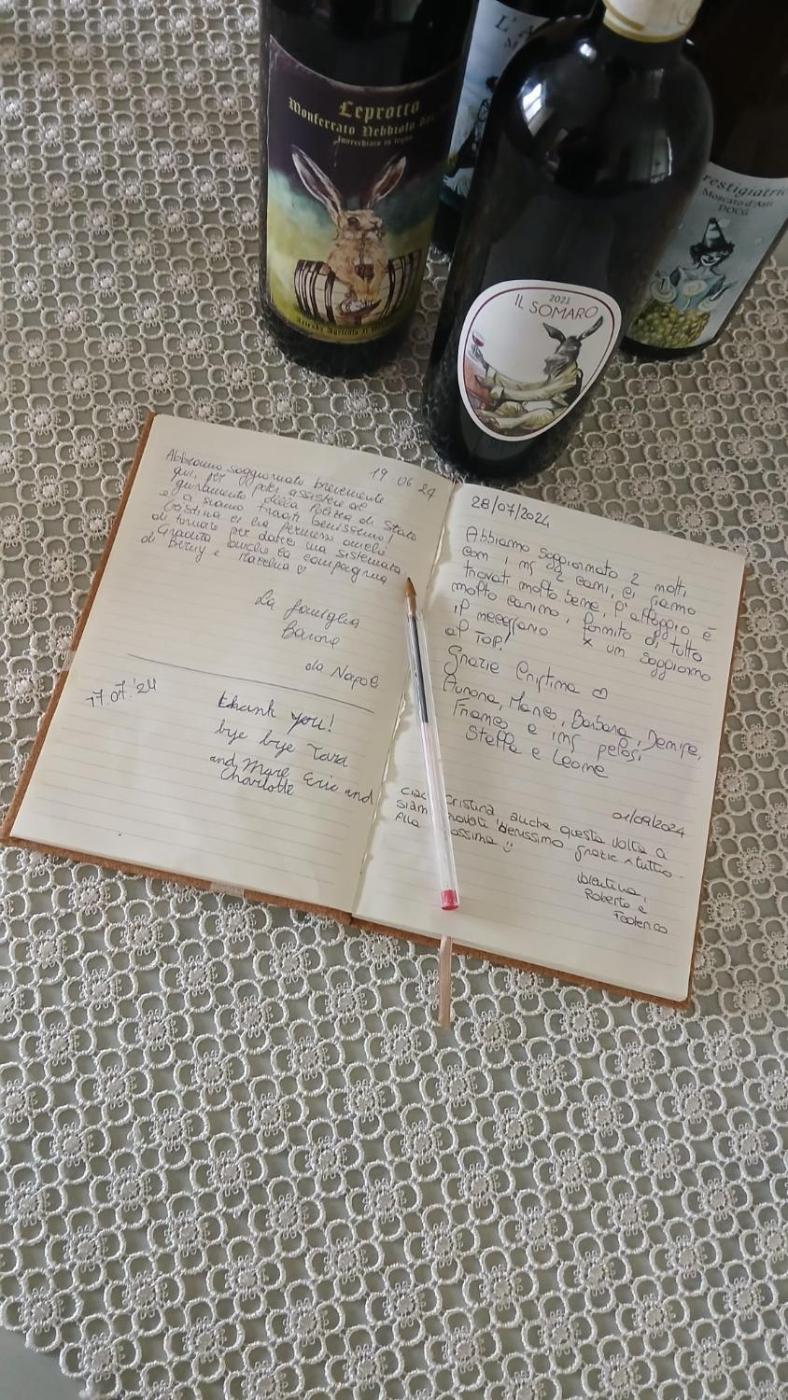 Leprotto
Monferrato Nebbiolo
Invecchiato in legno
Azienda Agricola
L'A
M
2021
IL SOMARO
restigiatric
Moscato d'Asti
DOCG
19 06 24
Abbiamo soggiornato brevemente
qui, per poter assistere al
giuramento della Polizia di Stato
e ci siamo trovati benissimo!
Cristina ci ha permesso anche
di tornare per darci una sistemata
Gradita anche la compagnia
di Betty e
La famiglia
Barone
da Napoli
17.07.'24
thank you!
bye bye Tara
and Marc Eric and
Charlotte
28/07/2024
Abbiamo soggiornato 2 notti
con i ns 2 cani, ci siamo
trovati molto bene, l'alloggio è
molto carino, fornito di tutto
il necessario x un soggiorno
al TOP!
Grazie Cristina ♡
Aurora, Manes, Barbara, Denise,
Franco e i ns pelosi
Stella e Leone
01/09/2024
Ciao Cristina anche questa volta ci
siam trovati benissimo grazie x tutto
Alla ossima ☺
Valentina,
Roberto e